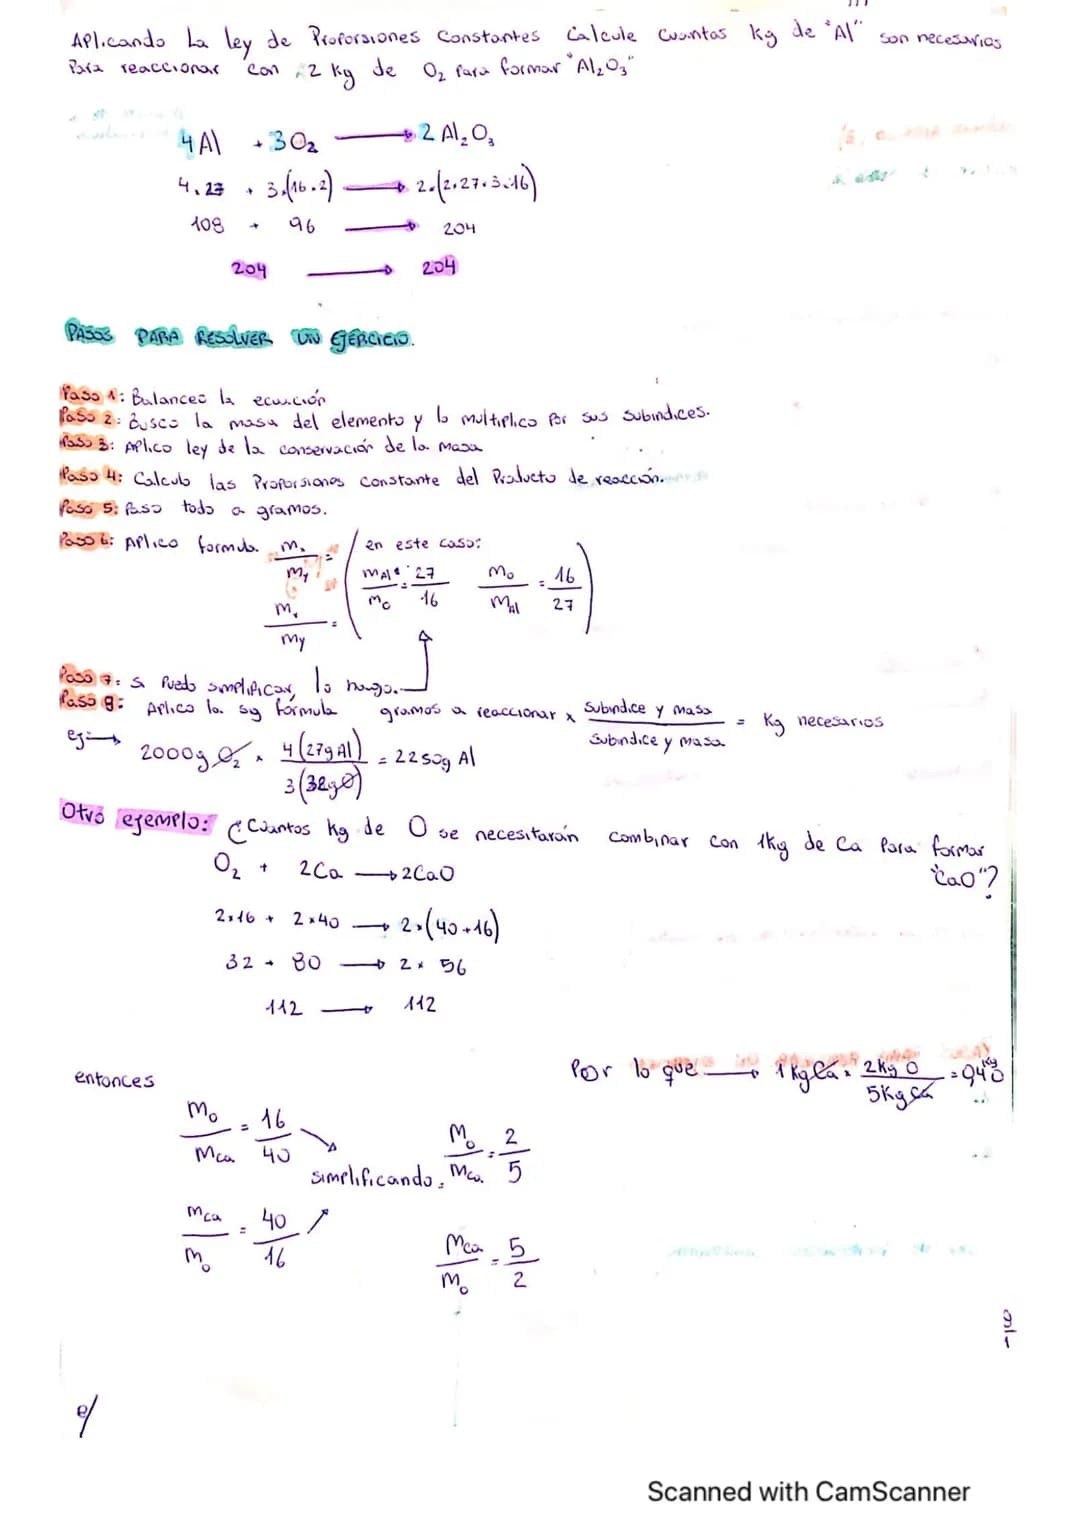 Aplicando La ley de Proporsiones Constantes Calcule Cuantos kg de "Al" son necesarios
Para reaccionar con 2 kg de O₂ Para formar "Al₂O₃"
4Al + 3O₂ → 2 Al₂O₃
4.27 + 3.(16.2) → 2.(2.27.3.16)
108 + 96 → 204
204 → 204
PASOS PARA RESOLVER UN EJERCICIO.
Paso 1: Balanceo la ecuación
Paso 2: Busco la masa del elemento y lo multiplico Por sus subindices.
Paso 3: Aplico ley de la conservación de la masa
Paso 4: Calculo las Proporsiones constante del Producto de reacción.
Paso 5: Paso todo a gramos.
Paso 6: Aplico formula. mₓ/my = en este caso:
mAl/mo = 27/16 mo/mAl = 16/27
mₓ/my =
Paso 7: Si Puedo simplificar, lo hago.
Paso 8: Aplico la sg formula gramos a reaccionar x Subindice y masa / Subindice y masa = Kg necesarios
ej: → 2000g O₂ × 4(27g Al) / 3(32g O) = 2250g Al
Otro ejemplo: ¿Cuantos kg de O se necesitarán combinar con 1kg de Ca Para formar
"CaO"?
O₂ + 2Ca → 2CaO
2×16 + 2×40 → 2×(40+16)
32 + 80 → 2 × 56
112 → 112
entonces
Por lo que → 1 kg Ca × 2Kg O / 5Kg Ca =
mo/mca = 16/40
simplificando: mo/mca = 2/5
mca/mo = 40/16
mca/mo = 5/2
Scanned with CamScanner